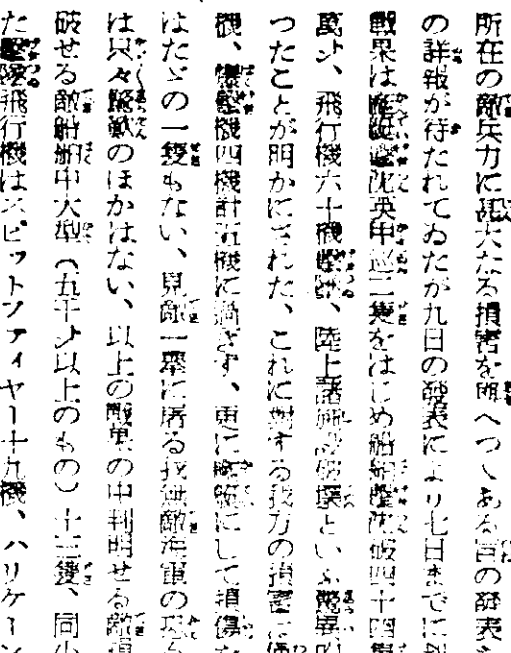 所在の敵兵力に甚大なる損害を與へつゝある旨の發表
の詳報が待たれてゐたが九日の發表により七日までに
戰果は艦艇擊沈英甲巡二隻をはじめ船舶擊沈破四十四
萬トン、飛行機六十機擊墜、陸上諸施設爆といふ驚異的
つたことが明かにされた、これに對する我方の損害は
機、爆擊機四機計五機に過ぎず、更に艦艇にして損傷
はたゞの一隻もない、見敵一擧に屠る我無敵海軍の
は只々驚歎のほかはない、以上の戰果の中判明せる敵
破せる敵船舶中大型(五千トン以上のもの)十三隻、同小
た擊墜飛行機はスピットファイヤー十九機、ハリケーン